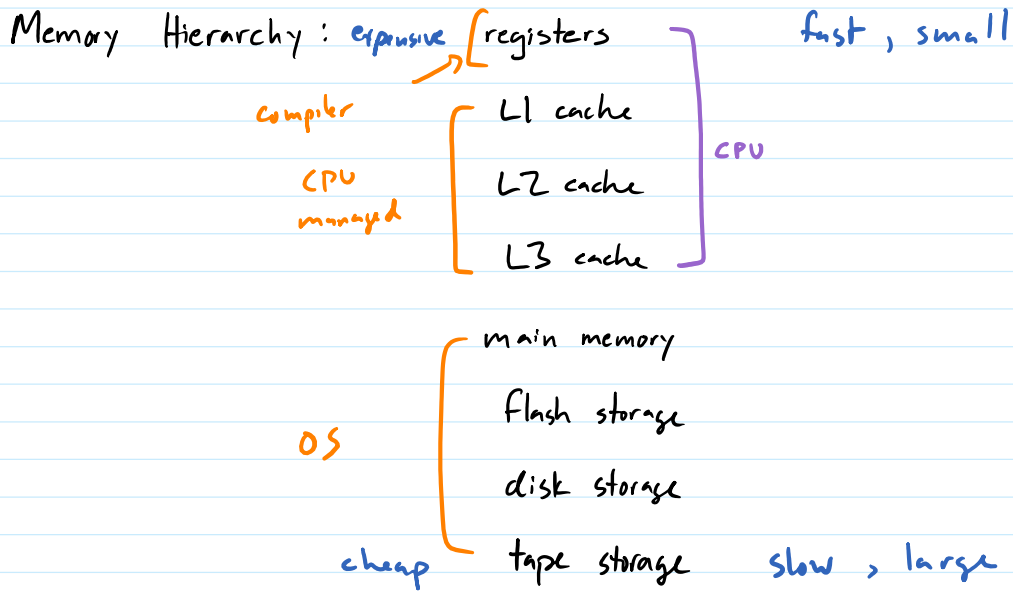 Memory Hierarchy: expensive registers fast, small
compiler L1 cache
CPU
CPU L2 cache
managed
L3 cache
main memory
flash storage
OS
disk storage
cheap tape storage slow, large